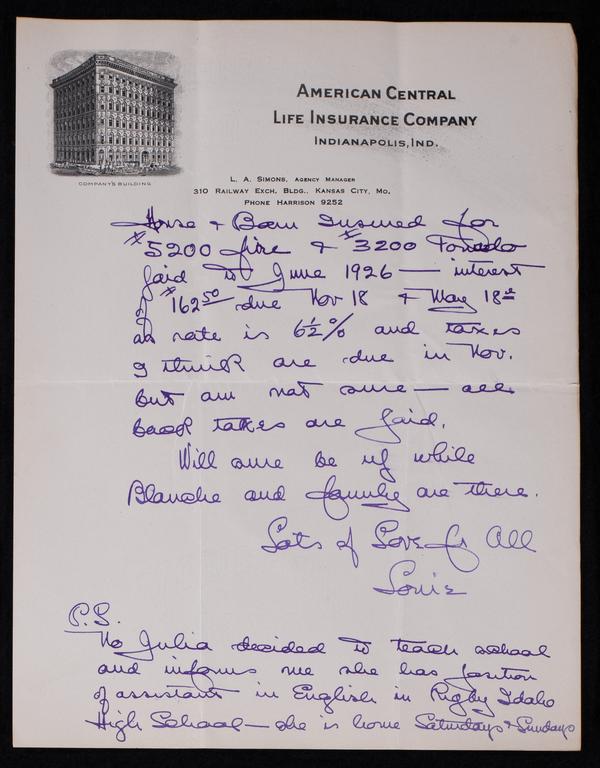 AMERICAN CENTRAL
LIFE INSURANCE COMPANY
INDIANAPOLIS, IND.
COMPANY'S BUILDING
L. A. SIMONS, AGENCY MANAGER
310 RAILWAY EXCH. BLDG., KANSAS CITY, MO.
PHONE HARRISON 9252
House & Barn Insured for
$5200 fire & $3200 Tornado
paid to June 1926 — interest
of $162 50 due Nov 18 & May 18th
as rate is 6 1/2 % and taxes
I think are due in Nov.
but am not sure — all
back taxes are paid.
Will sure be up while
Blanche and family are there.
Lots of Love for All
Louis
P.S.
No Julia decided to teach school
and informs me she has position
of assistant in English in Rigby Idaho
High School — she is home Saturdays & Sundays